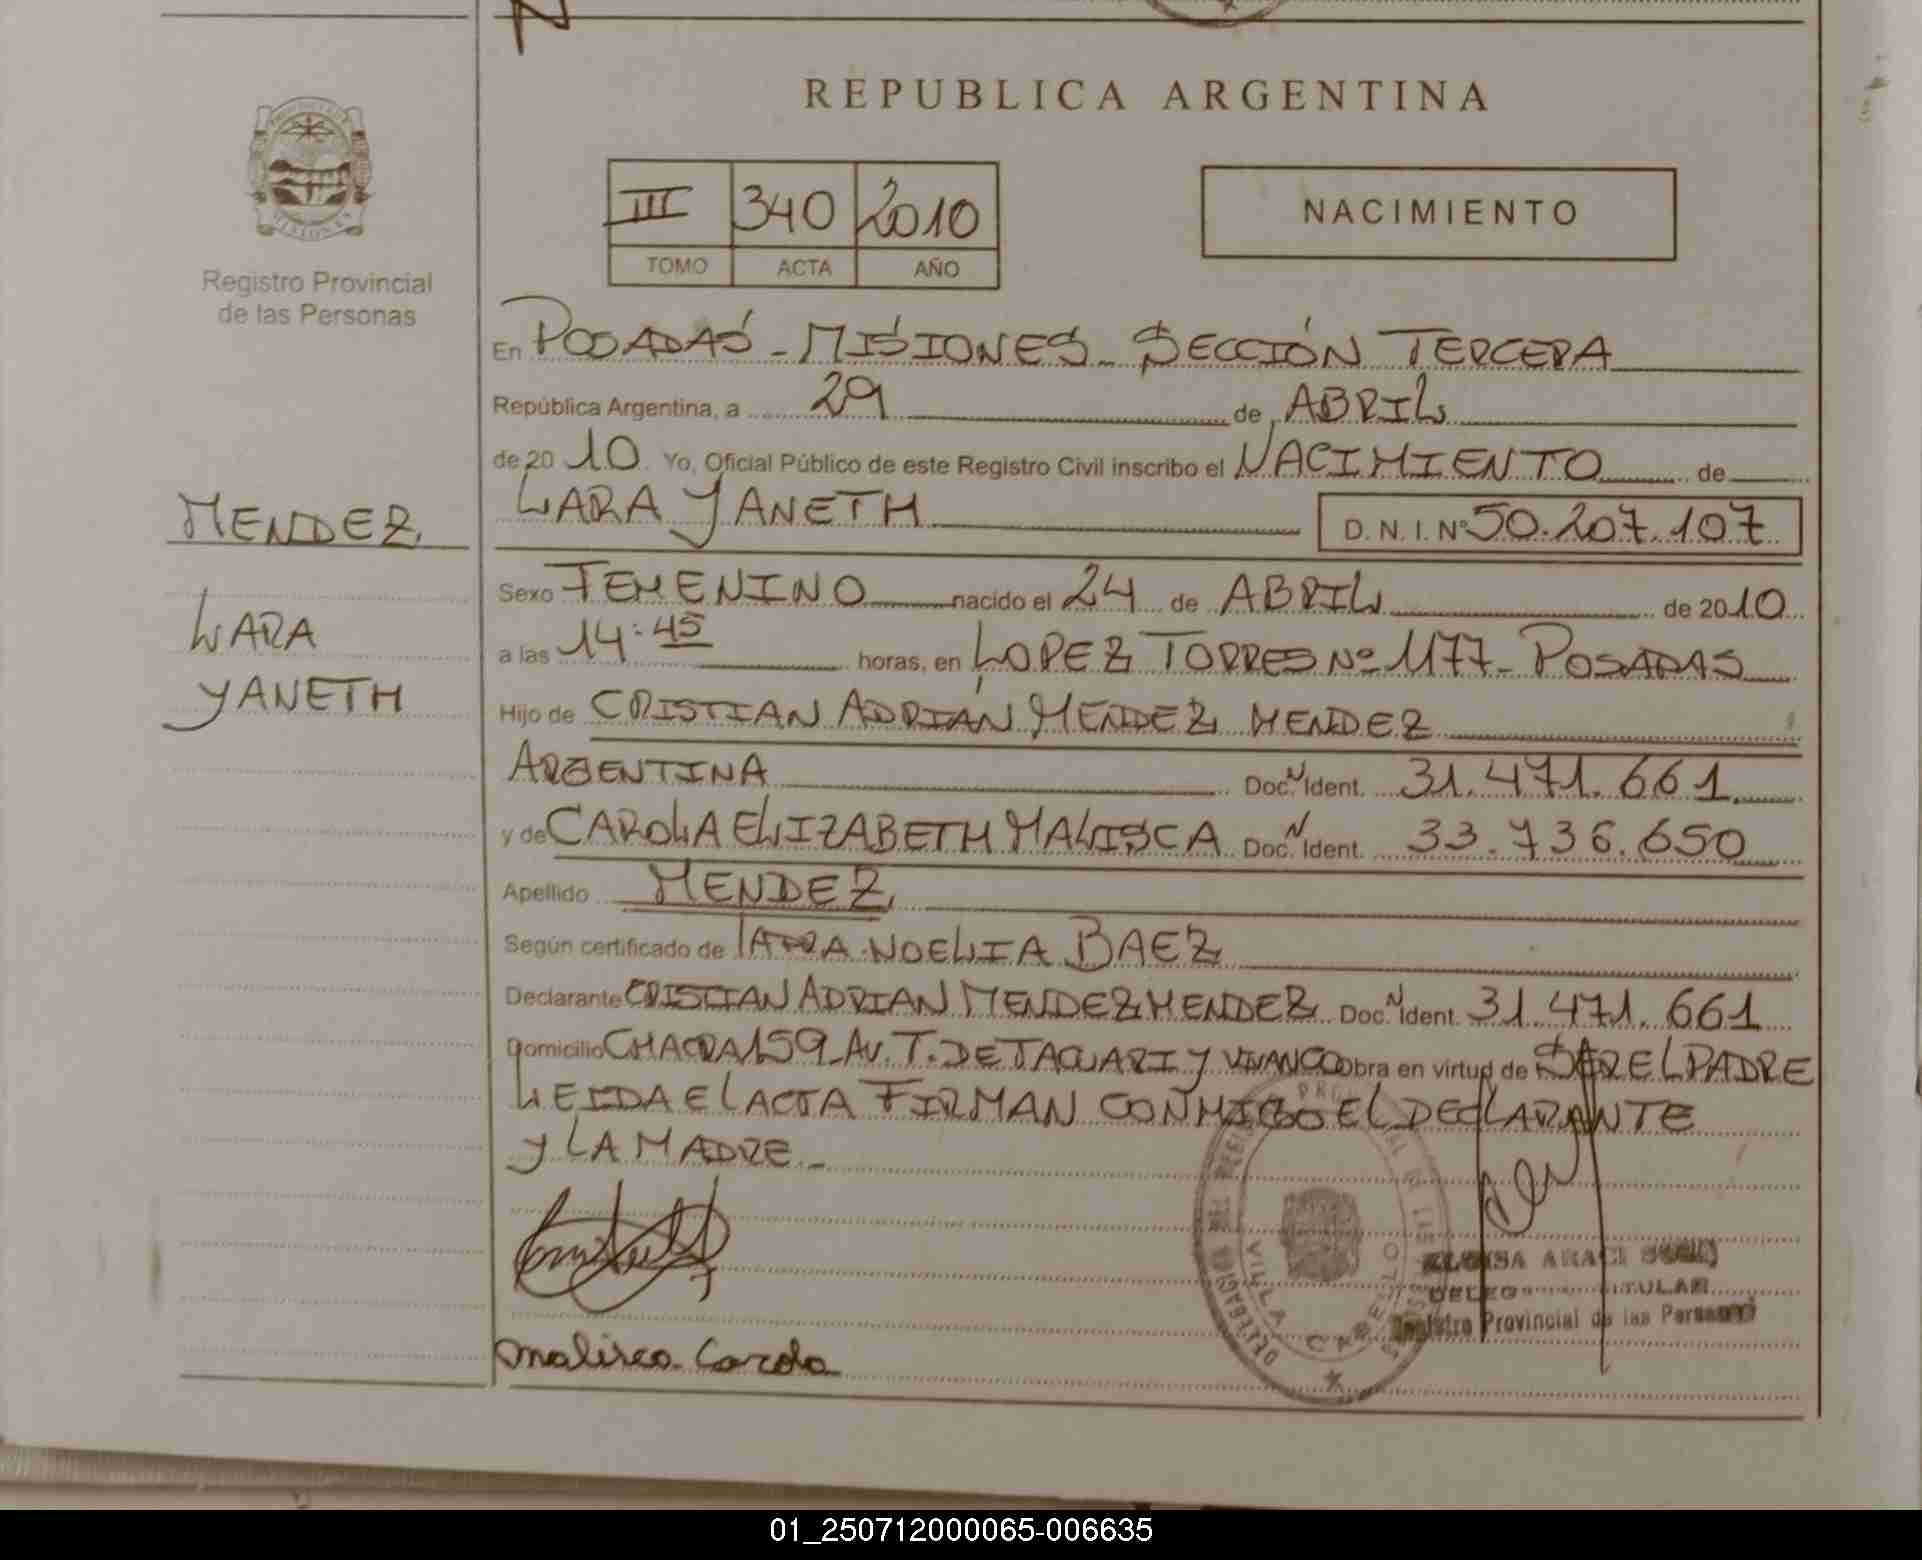 REPUBLICA ARGENTINA
III 340 2010
TOMO ACTA AÑO
NACIMIENTO
Registro Provincial
de las Personas
MENDEZ
LARA
YANETH
En POSADAS - MISIONES - SECCIÓN TERCERA
República Argentina, a 29 de ABRIL
de 2010 Yo, Oficial Público de este Registro Civil inscribo el NACIMIENTO de
LARA YANETH D.N.I. Nº 50.207.107
Sexo FEMENINO nacido el 24 de ABRIL de 2010
a las 14:45 horas, en LOPEZ TORRES Nº 1177 - POSADAS
Hijo de CRISTIAN ADRIAN MENDEZ MENDEZ
ARGENTINA Doc. N Ident. 31.471.661
y de CAROLA ELIZABETH MALISCA Doc. N Ident. 33.736.650
Apellido MENDEZ
Según certificado de NOELIA BAEZ
Declarante CRISTIAN ADRIAN MENDEZ MENDEZ Doc. N Ident. 31.471.661
Domicilio CHACRA 159 - AV. T. DE TACUARI Y VIVANCO obra en virtud de SER EL PADRE
LEIDA EL ACTA FIRMAN CONMIGO EL DECLARANTE
Y LA MADRE -
Malisca Carola
VILLA CABELLO
TITULAR
Registro Provincial de las Personas
01_250712000065-006635